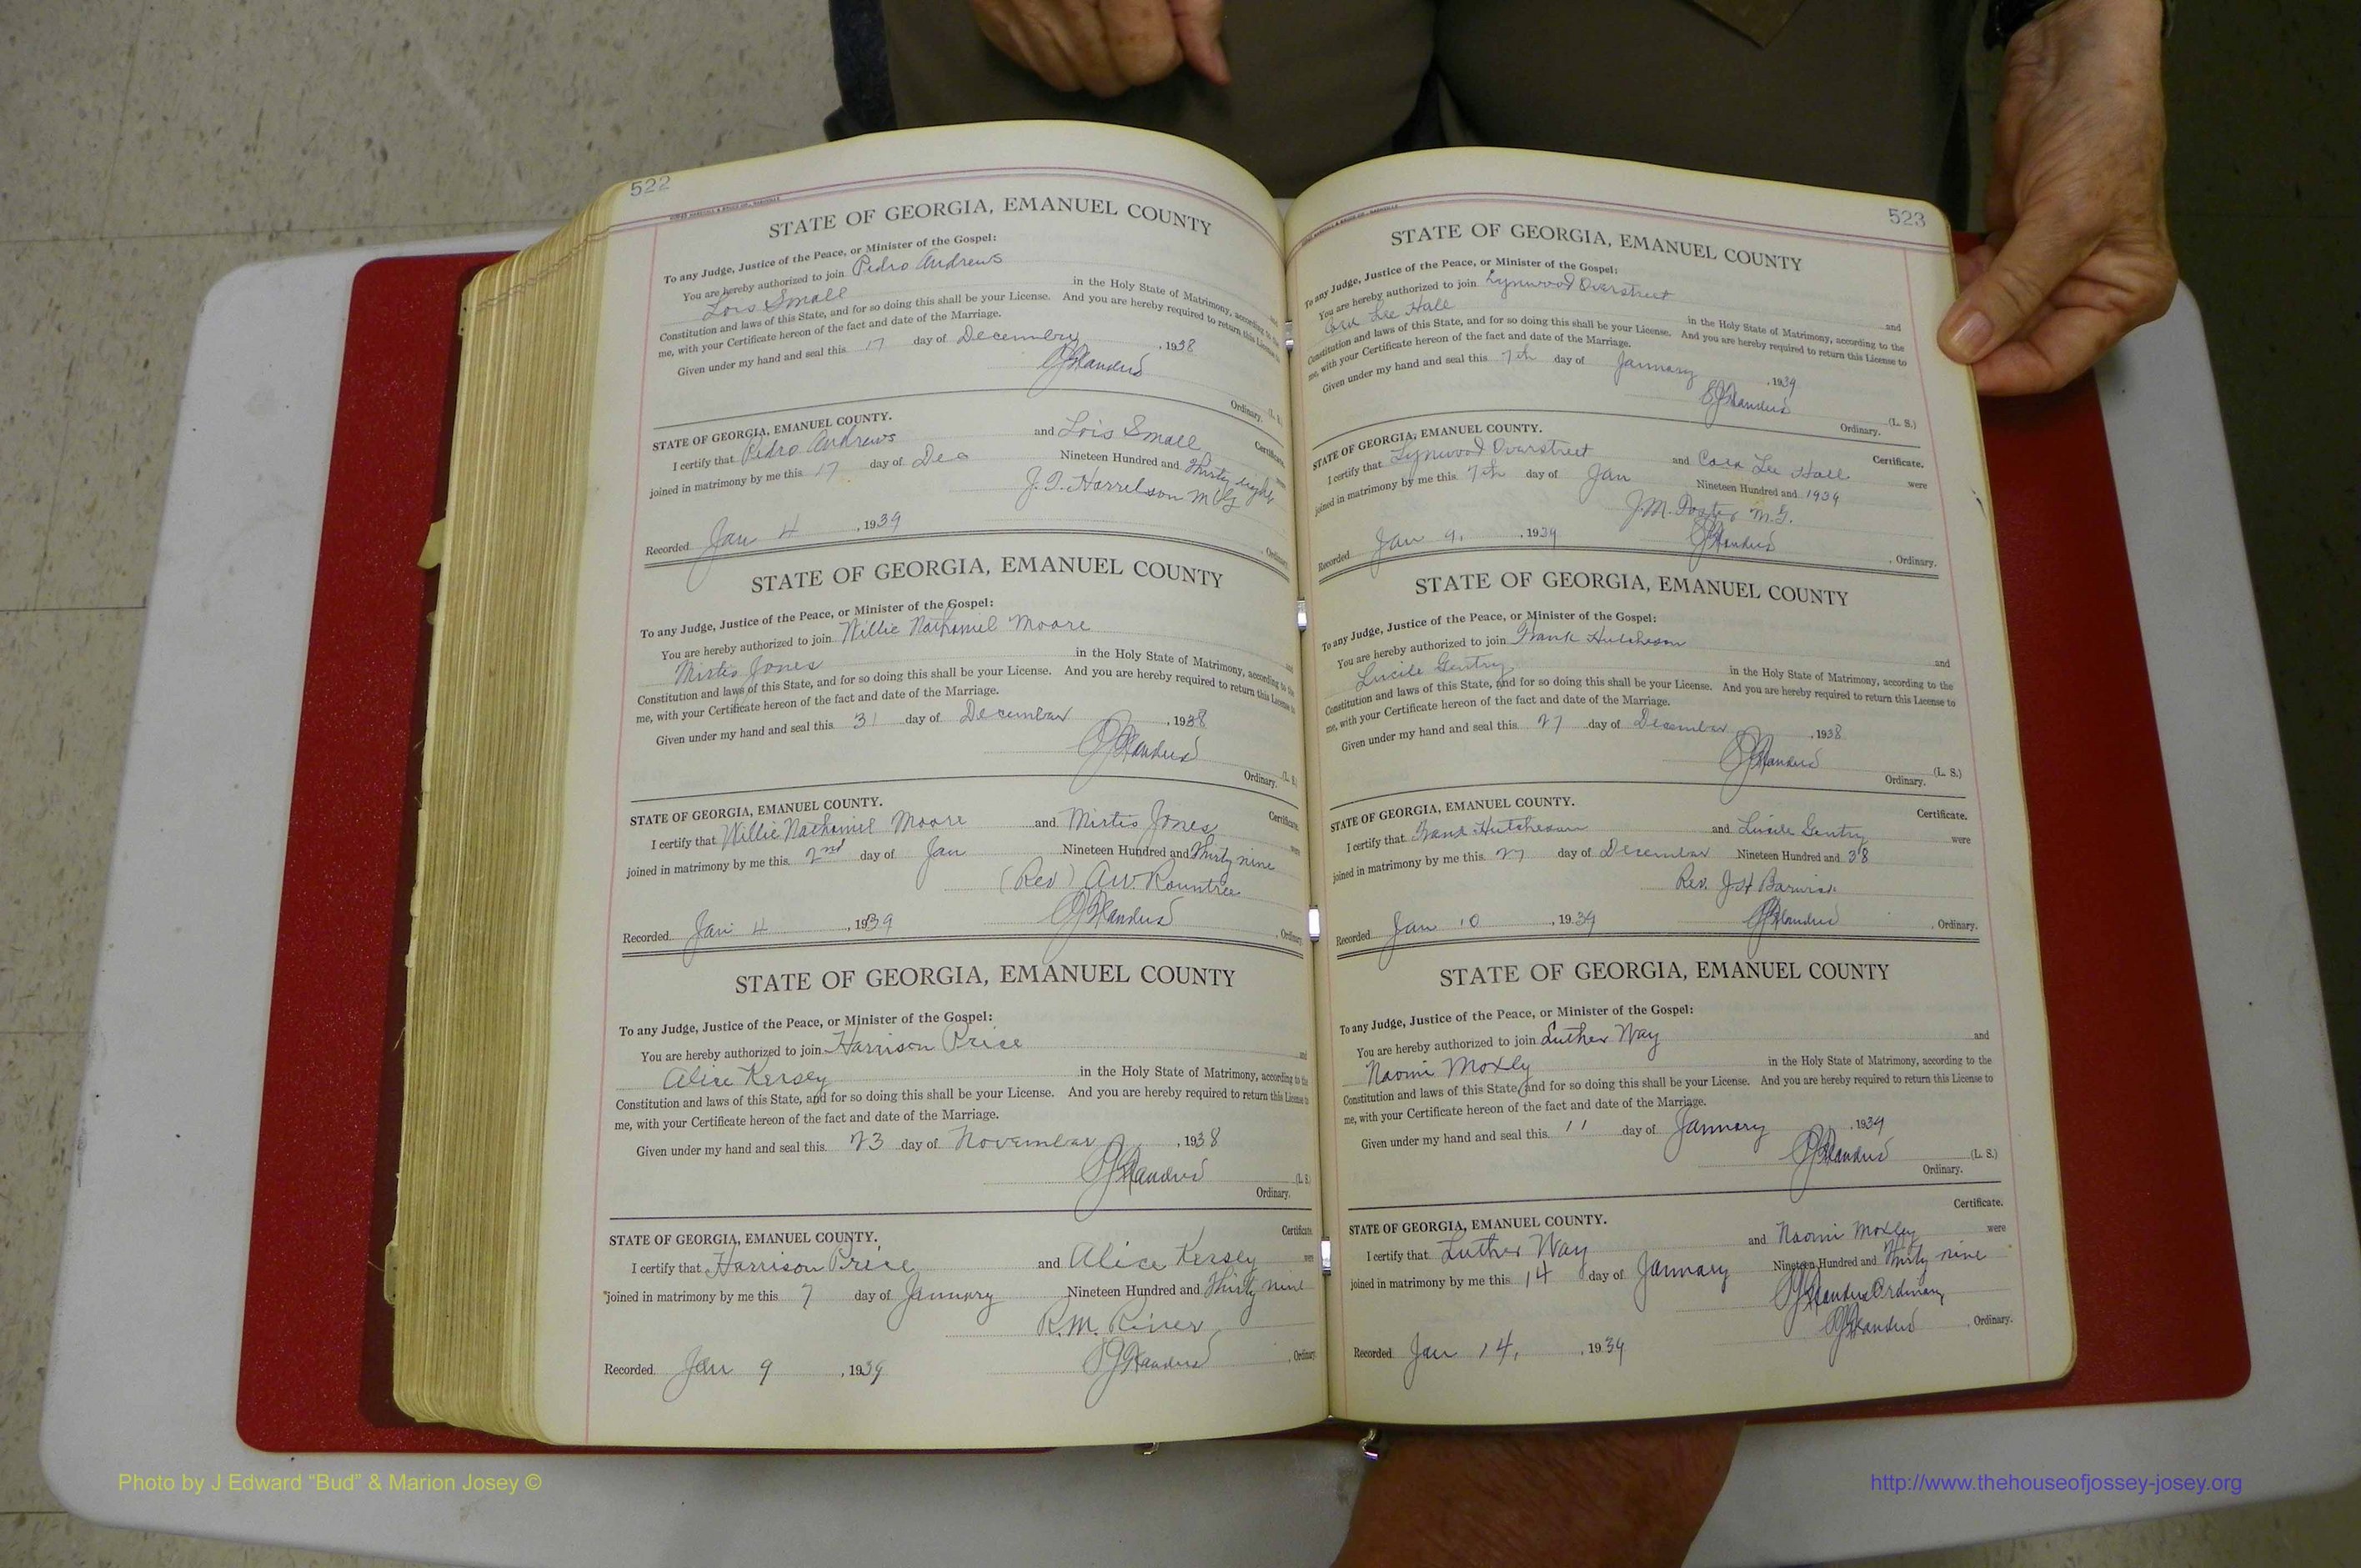 522
STATE OF GEORGIA, EMANUEL COUNTY
To any Judge, Justice of the Peace, or Minister of the Gospel:
You are hereby authorized to join Pedro Andrews
Lois Small in the Holy State of Matrimony, according to the
Constitution and laws of this State, and for so doing this shall be your License. And you are hereby required to return this License to
me, with your Certificate hereon of the fact and date of the Marriage.
Given under my hand and seal this 17 day of December, 1938
(L. S.)
Ordinary.
STATE OF GEORGIA, EMANUEL COUNTY. Certificate.
I certify that Pedro Andrews and Lois Small were
joined in matrimony by me this 17 day of Dec Nineteen Hundred and Thirty eight
J. D. Harrelson M G
Recorded Jan 4, 1939 , Ordinary
STATE OF GEORGIA, EMANUEL COUNTY
To any Judge, Justice of the Peace, or Minister of the Gospel:
You are hereby authorized to join Willie Nathaniel Moore and
Mirtis Jones in the Holy State of Matrimony, according to the
Constitution and laws of this State, and for so doing this shall be your License. And you are hereby required to return this License to
me, with your Certificate hereon of the fact and date of the Marriage.
Given under my hand and seal this 31 day of December, 1938
(L. S.)
Ordinary.
STATE OF GEORGIA, EMANUEL COUNTY. Certificate.
I certify that Willie Nathaniel Moore and Mirtis Jones were
joined in matrimony by me this 2nd day of Jan Nineteen Hundred and Thirty nine
(Rev) A.W. Rountree
Recorded Jan 4, 1939 , Ordinary
STATE OF GEORGIA, EMANUEL COUNTY
To any Judge, Justice of the Peace, or Minister of the Gospel:
You are hereby authorized to join Harrison Price and
Alice Kersey in the Holy State of Matrimony, according to the
Constitution and laws of this State, and for so doing this shall be your License. And you are hereby required to return this License to
me, with your Certificate hereon of the fact and date of the Marriage.
Given under my hand and seal this 23 day of November, 1938
(L. S)
Ordinary.
Certificate
STATE OF GEORGIA, EMANUEL COUNTY.
I certify that Harrison Price and Alice Kersey were
joined in matrimony by me this 7 day of January Nineteen Hundred and Thirty nine
R. M. Riner
Recorded Jan 9, 1939 , Ordinary
523
STATE OF GEORGIA, EMANUEL COUNTY
To any Judge, Justice of the Peace, or Minister of the Gospel:
You are hereby authorized to join Lynwood Overstreet and
Cora Lee Hall in the Holy State of Matrimony, according to the
Constitution and laws of this State, and for so doing this shall be your License. And you are hereby required to return this License to
me, with your Certificate hereon of the fact and date of the Marriage.
Given under my hand and seal this 7th day of January, 1939
(L. S.)
Ordinary.
STATE OF GEORGIA, EMANUEL COUNTY. Certificate.
I certify that Lynwood Overstreet and Cora Lee Hall were
joined in matrimony by me this 7th day of Jan Nineteen Hundred and 1939
J.M. Foster M.G.
Recorded Jan 9, 1939 , Ordinary.
STATE OF GEORGIA, EMANUEL COUNTY
To any Judge, Justice of the Peace, or Minister of the Gospel:
You are hereby authorized to join Frank Hutcheson and
Lucile Gentry in the Holy State of Matrimony, according to the
Constitution and laws of this State, and for so doing this shall be your License. And you are hereby required to return this License to
me, with your Certificate hereon of the fact and date of the Marriage.
Given under my hand and seal this 27 day of December, 1938
(L. S.)
Ordinary.
STATE OF GEORGIA, EMANUEL COUNTY. Certificate.
I certify that Frank Hutcheson and Lucile Gentry were
joined in matrimony by me this 27 day of December Nineteen Hundred and 38
Rev. J H Barwick
Recorded Jan 10, 1939 , Ordinary.
STATE OF GEORGIA, EMANUEL COUNTY
To any Judge, Justice of the Peace, or Minister of the Gospel:
You are hereby authorized to join Luther Way and
Naomi Moxley in the Holy State of Matrimony, according to the
Constitution and laws of this State, and for so doing this shall be your License. And you are hereby required to return this License to
me, with your Certificate hereon of the fact and date of the Marriage.
Given under my hand and seal this 11 day of January, 1939
(L. S.)
Ordinary.
Certificate.
STATE OF GEORGIA, EMANUEL COUNTY.
I certify that Luther Way and Naomi Moxley were
joined in matrimony by me this 14 day of January Nineteen Hundred and Thirty nine
Ordinary
Recorded Jan 14, 1939 , Ordinary.
Photo by J Edward “Bud” & Marion Josey ©
http://www.thehouseofjossey-josey.org